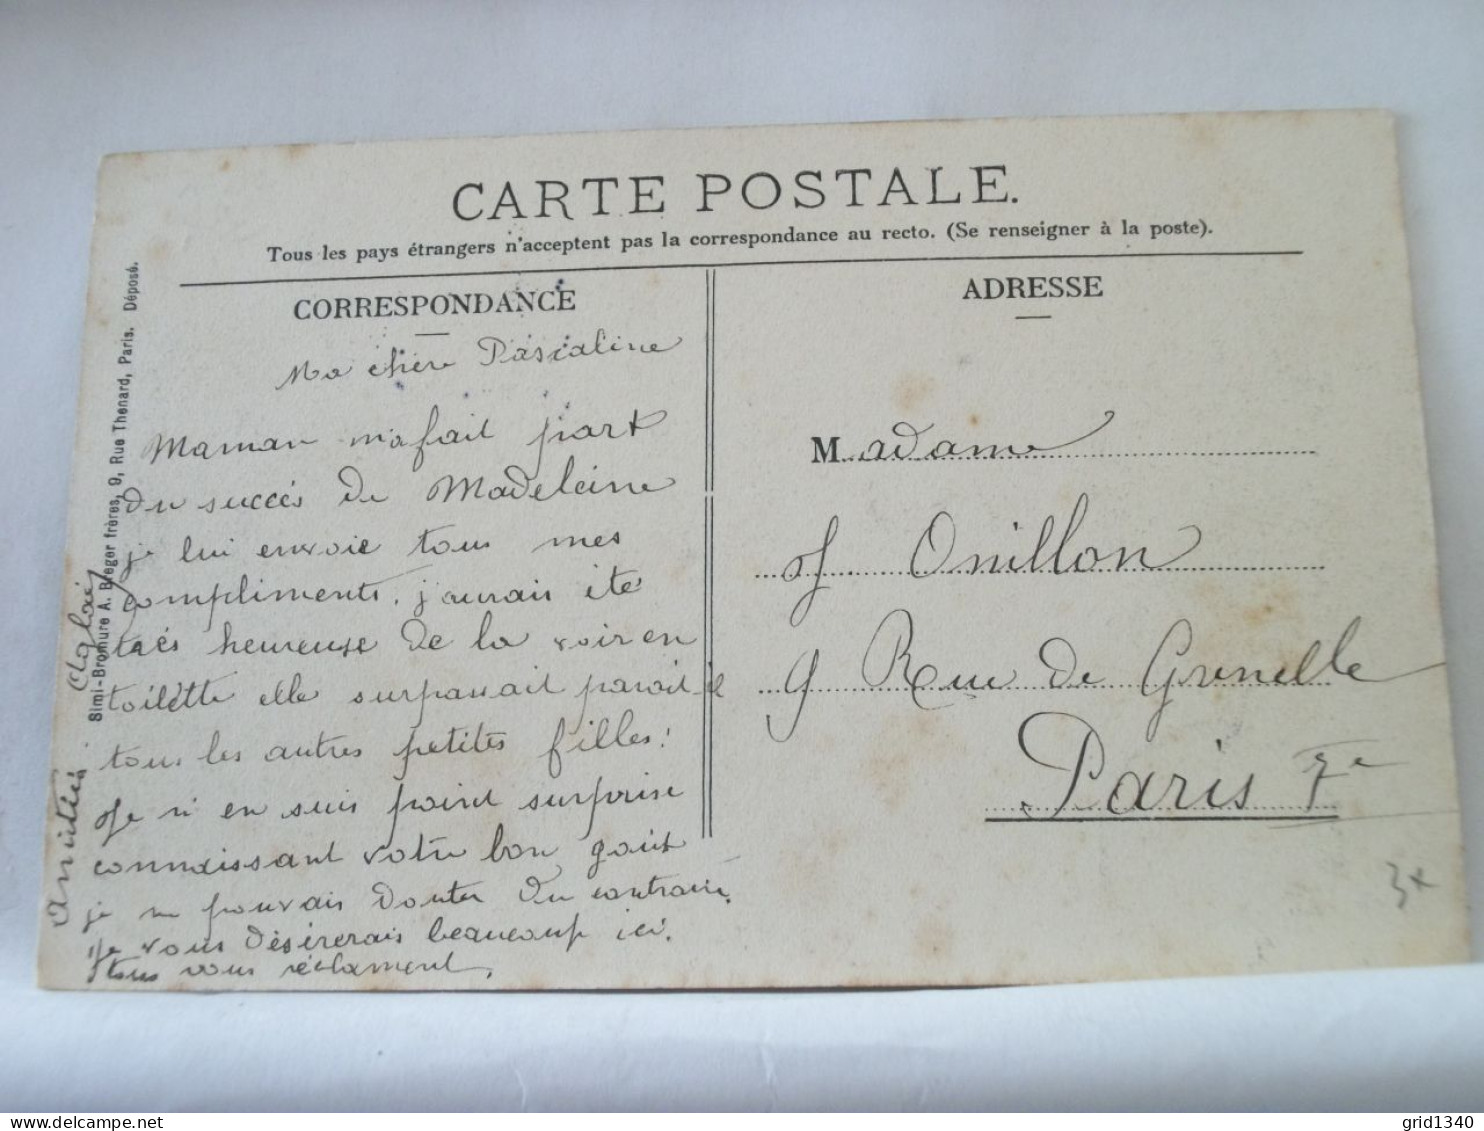 CARTE POSTALE.
Tous les pays étrangers n'acceptent pas la correspondance au recto. (Se renseigner à la poste).
CORRESPONDANCE
Ma chère Pascaline
Maman m'a fait part
du succès de Madeleine
je lui envoie tous mes
compliments, j'aurais été
très heureuse de la voir en
toilette elle surpassait parait-il
tous les autres petites filles!
Je n'en suis point surprise
connaissant votre bon goût
je ne pouvais douter du contraire.
Je vous désirerais beaucoup ici.
tous vous réclament.
Amitiés. Aglaé
Simi-Bromure A. Breger frères, 9, Rue Thenard, Paris. Déposé.
ADRESSE
Madame
Onillon
9 Rue de Grenelle
Paris 7e
3x
grid1340